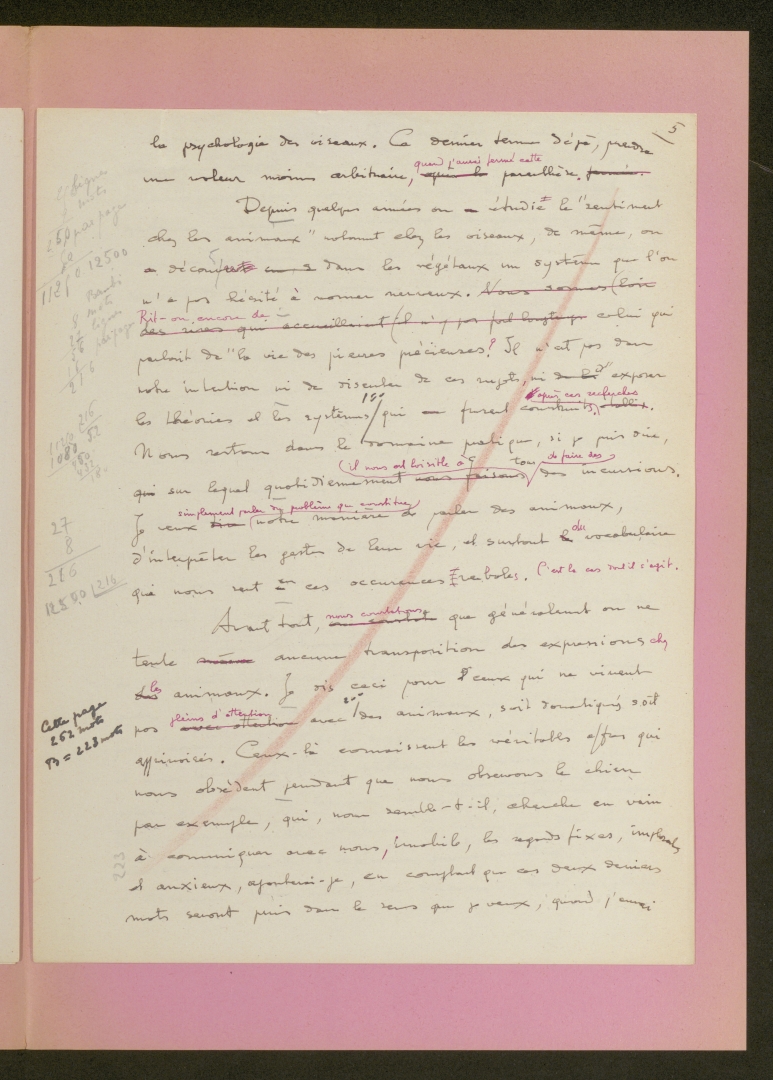 5
la psychologie des oiseaux. Ce dernier terme déjà, prendra
quand j'aurai fermé cette
une valeur moins arbitraire, parenthèse.
Depuis quelques années on étudie le "sentiment
chez les animaux" notamment chez les oiseaux, de même, on
a découvert dans les végétaux un système que l'on
n'a pas hésité à nommer nerveux. Nous sommes loin
Rit-on encore de
des rires qui accueillaient il n'y a pas celui qui
parlait de "la vie des pierres précieuses? Il n'est pas dans
notre intention ni de discuter de ces sujets, ni d' exposer
après ces recherches
100
les théories et les systèmes qui furent construits.
Nous restons dans le domaine poétique, si je puis dire,
il nous est loisible à tous de faire des
sur lequel quotidiennement nous faisons des incursions.
simplement parler du problème que constitue
Je veux notre manière de parler des animaux,
d'interpréter les gestes de leur vie, et surtout du vocabulaire
que nous sert en ces occurences C'est le cas ou il s'agit.
nous constatons
Avant tout, que généralement on ne
tente aucune transposition des expressions chez
les animaux. Je dis ceci pour ceux qui ne vivent
pleins d'attention
200
pas avec attention avec des animaux, soit domestiqués soit
apprivoisés. Ceux-là connaissent les véritables affres qui
nous obsèdent pendant que nous observons le chien
par exemple, qui, nous semble-t-il, cherche en vain
à communiquer avec nous, immobile, les regards fixes, implorants
et anxieux, ajouterai-je, en comptant que ces deux derniers
mots seront pris dans le sens que je veux, quand j'aurai
Cette page
262 mots
B = 228 mots
27
8
216
12500 216
223